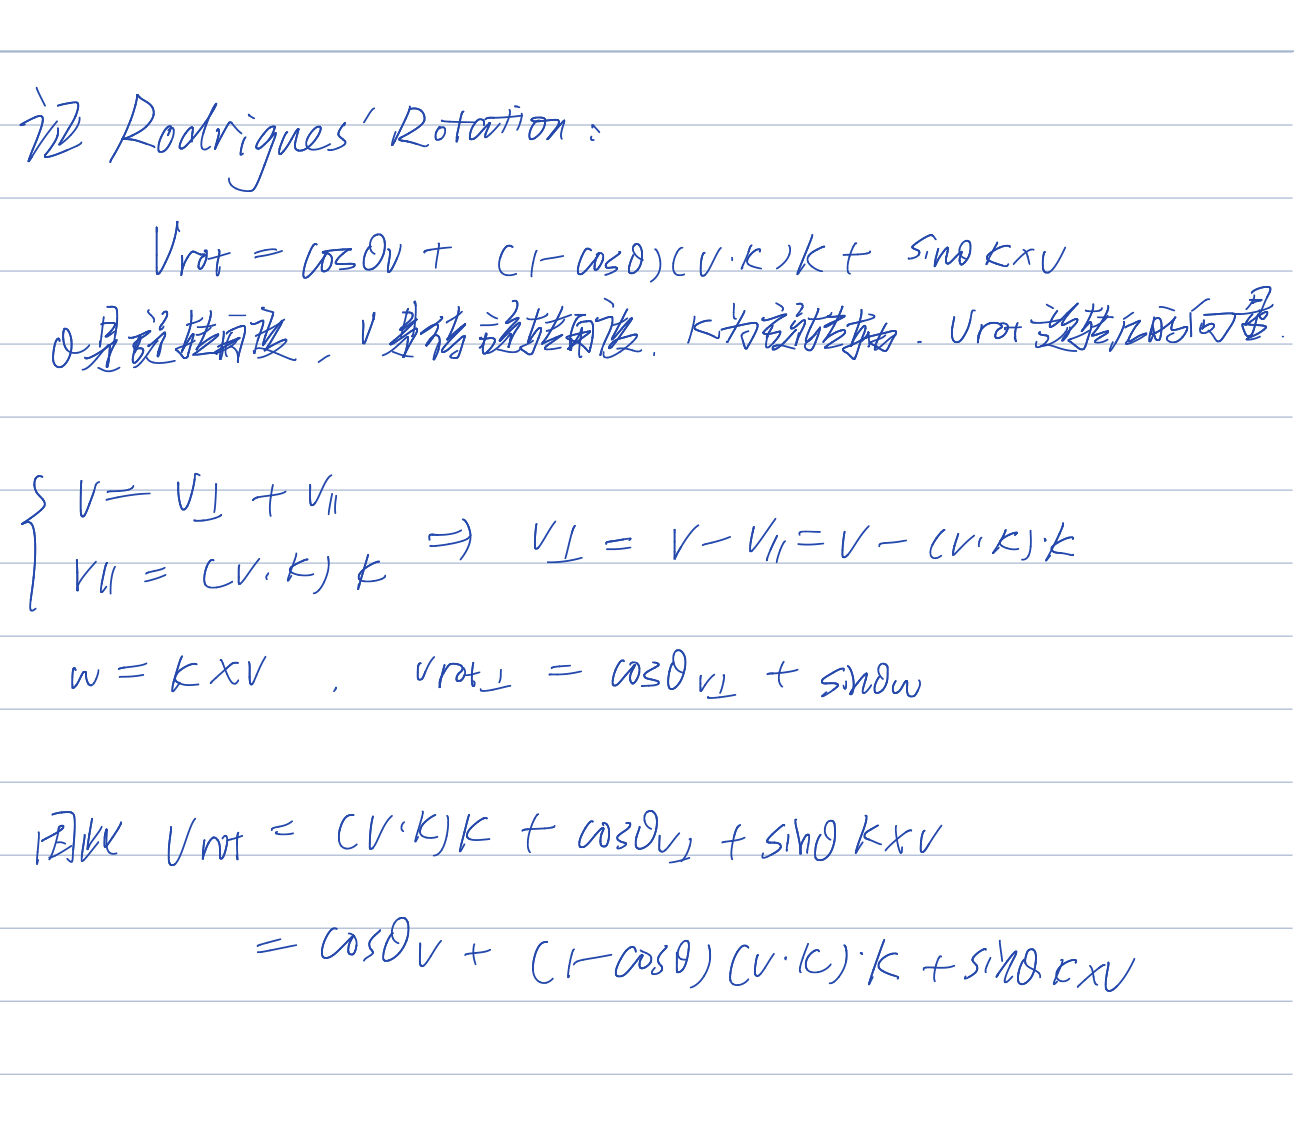 证 Rodrigues' Rotation:
Vrot = cosθv + (1-cosθ)(v·k)k + sinθ k×v
θ是旋转角度, V是待旋转角度. k为旋转轴. Vrot 旋转后的向量.
{ V = V⊥ + V∥
V∥ = (v·k) k ⇒ V⊥ = V - V∥ = V - (v·k)·k
w = k×v . Vrot⊥ = cosθv⊥ + sinθw
因此 Vrot = (v·k)k + cosθv⊥ + sinθ k×v
= cosθv + (1-cosθ)(v·k)·k + sinθ k×v